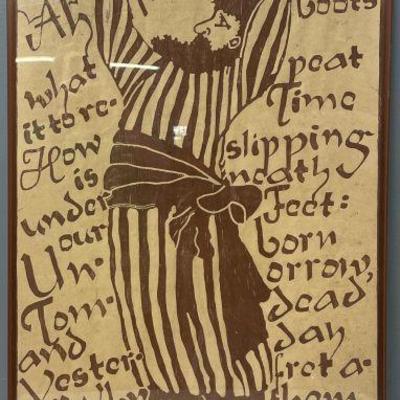 Ah boots
what
it to re- peat
How Time
is slipping
under neath
our Feet:
Un- born
Tom- orrow,
and dead
Yester- day
fret a-
them